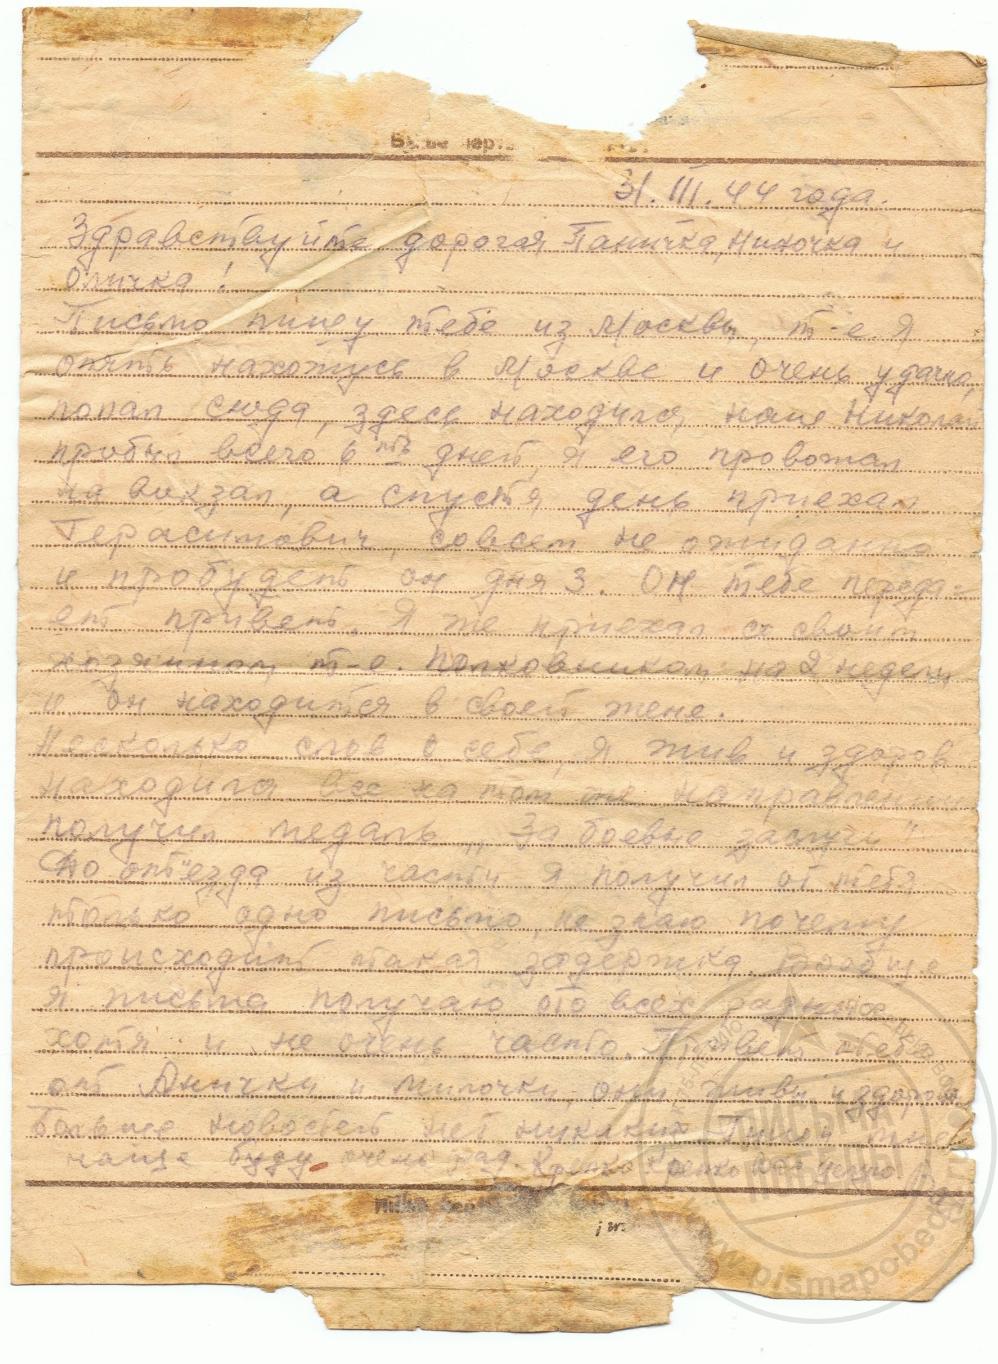 31.III.44 года.
Здравствуйте дорогая Паничка, Ниночка и
Оличка!
Письмо пишу тебе из Москвы, т-е. я
опять нахожусь в Москве и очень удачно,
попал сюда, здесь находился наш Николай
пробыл всего 6ть дней, я его провожал
на вокзал, а спустя день приехал
Герасимович, совсем не ожиданно
и пробудет он дня 3. Он тебе переда-
ет привет. Я же приехал со своим
хозяином т-е. полковником на 2 недели
и он находится в своей жене.
Несколько слов о себе, я жив и здоров
находился все на том же направлении
получил медаль „За боевые заслуги"
До отъезда из части я получил от тебя
только одно письмо, не знаю почему
происходит такая задержка. Вообще
я письма получаю ото всех
хотя и не очень часто. Привет тебе
от Анички и Милочки, они живы и здоровы
Больше новостей нет никаких. Пиши
чаще буду очень рад. Крепко Крепко вас целую
ПИСЬМА
ПОБЕДЫ
www.pismapobedy.ru